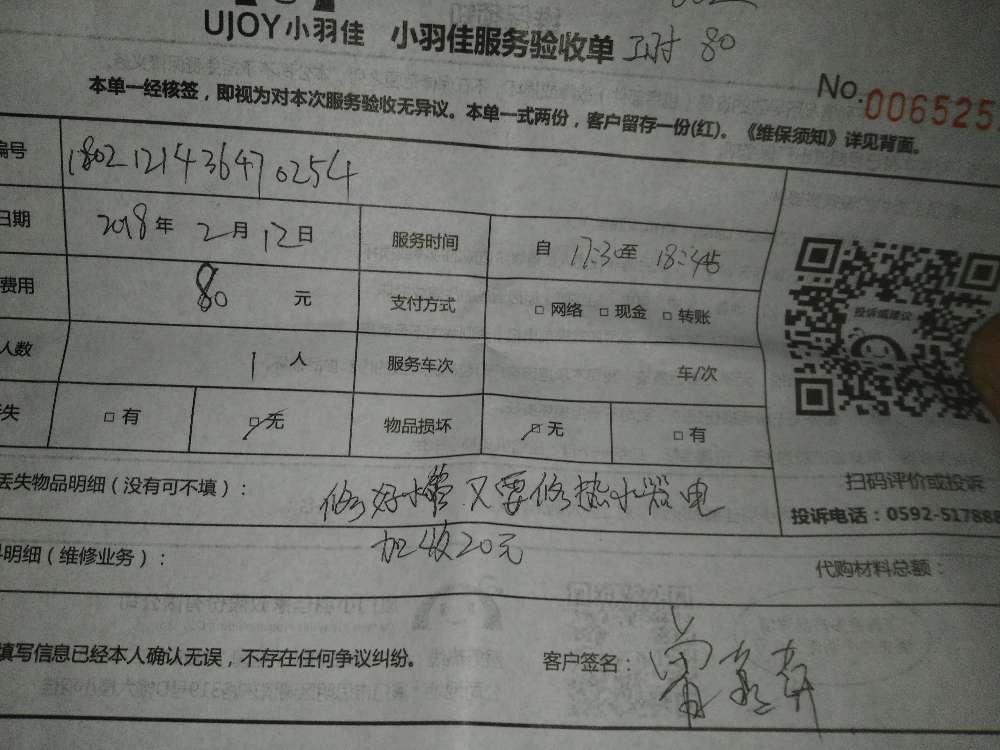 UJOY小羽佳 小羽佳服务验收单 工时 80
No.006525
本单一经核签，即视为对本次服务验收无异议。本单一式两份，客户留存一份(红)。《维保须知》详见背面。
编号 180212143647 0254
日期 2018年 2月 12日 服务时间 自 17:30至 18:45
费用 80 元 支付方式 □ 网络 □ 现金 □ 转账
人数 1 人 服务车次 车/次
失 □ 有 □ 无 物品损坏 □ 无 □ 有
投诉或建议
扫码评价或投诉
投诉电话：0592-517888
丢失物品明细（没有可不填）： 修好水管.又要修热水器电
加收20元
明细（维修业务）： 代购材料总额：
填写信息已经本人确认无误，不存在任何争议纠纷。 客户签名：